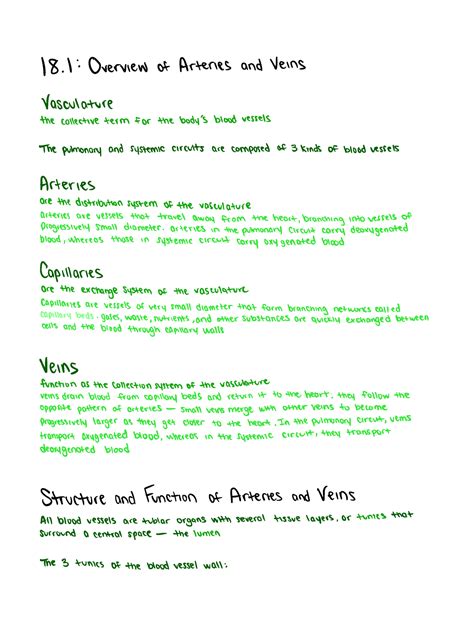 18.1: Overview of Arteries and Veins
Vasculature
the collective term for the body's blood vessels
The pulmonary and systemic circuits are composed of 3 kinds of blood vessels
Arteries
are the distribution system of the vasculature
arteries are vessels that travel away from the heart, branching into vessels of
progressively small diameter. arteries in the pulmonary circuit carry deoxygenated
blood, whereas those in systemic circuit carry oxygenated blood
Capillaries
are the exchange system of the vasculature
Capillaries are vessels of very small diameter that form branching networks called
capillary beds. gases, waste, nutrients, and other substances are quickly exchanged between
cells and the blood through capillary walls
Veins
function as the collection system of the vasculature
veins drain blood from capillary beds and return it to the heart. they follow the
opposite pattern of arteries — small veins merge with other veins to become
progressively larger as they get closer to the heart. In the pulmonary circuit, veins
transport oxygenated blood, whereas in the systemic circuit, they transport
deoxygenated blood
Structure and Function of Arteries and Veins
All blood vessels are tublar organs with several tissue layers, or tunics that
surround a central space — the lumen
The 3 tunics of the blood vessel wall: